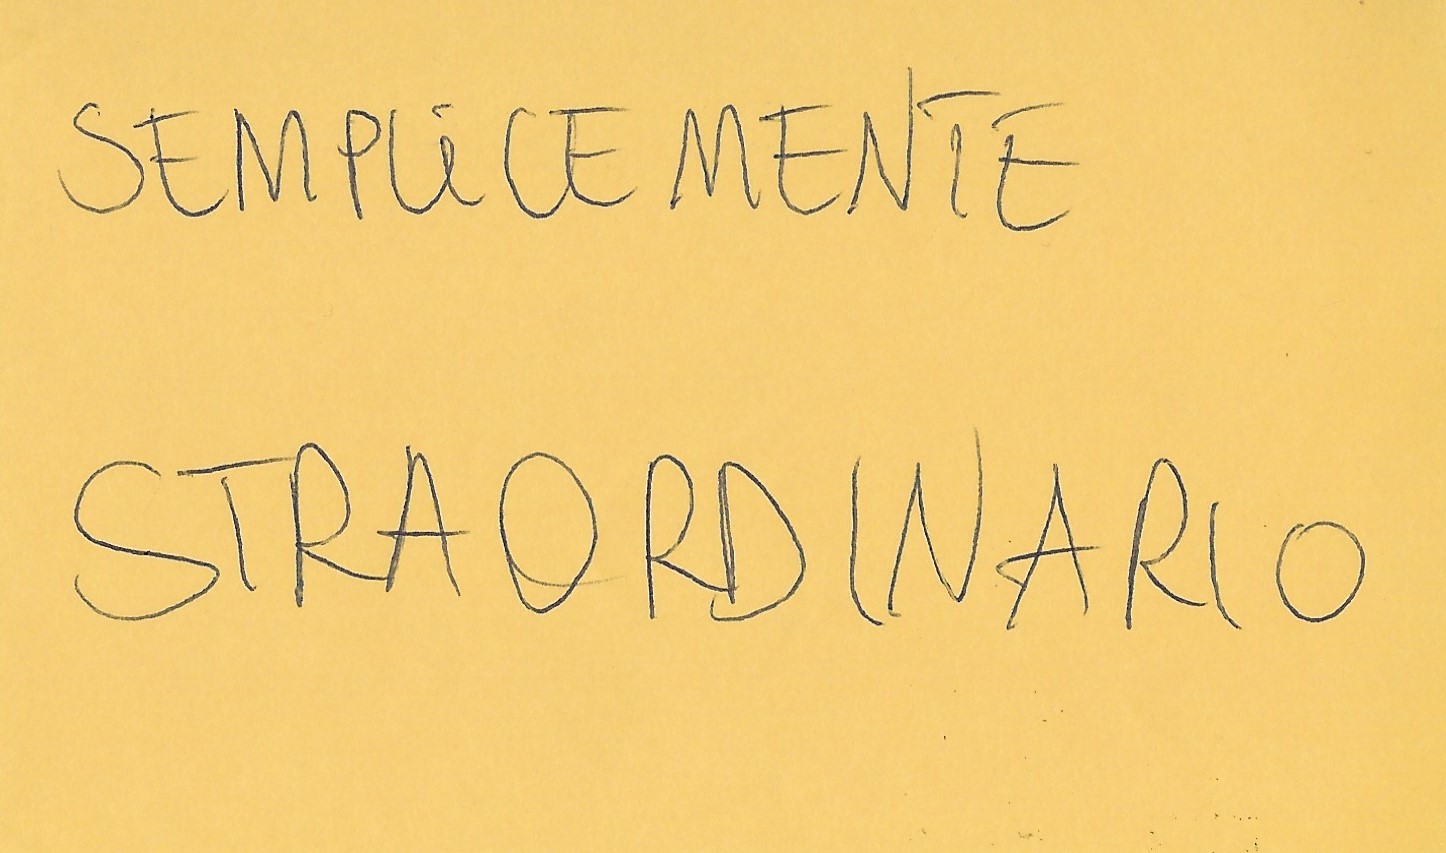 SEMPLiCEMENTE
STRAORDINARIO